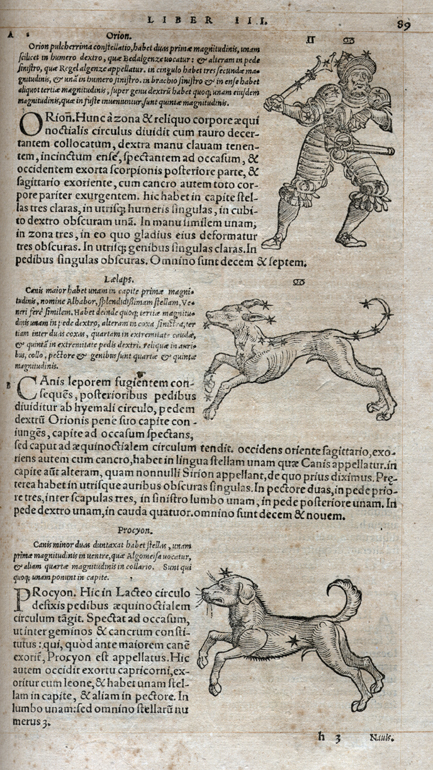 LIBER III.
89
A
Orion.
II
♋
Orion pulcherrima constellatio, habet duas primæ magnitudinis, unam
scilicet in humero dextro, quæ Bedalgenze uocatur: & alteram in pede
sinistro, quæ Regel algenze appellatur. in cingulo habet tres secundæ ma-
gnitudinis, & unā in humero sinistro. in brachio sinistro & in ense habet
aliquot tertiæ magnitudinis, super genu dextrū habet quoq; unam eiusdem
magnitudinis, quæ in fuste inueniuntur, sunt quintæ magnitudinis.
ORion. Hunc à zona & reliquo corpore æqui
noctialis circulus diuidit cum tauro decer-
tantem collocatum, dextra manu clauam tenen-
tem, incinctum ense, spectantem ad occasum, &
occidentem exorta scorpionis posteriore parte, &
sagittario exoriente, cum cancro autem toto cor-
pore pariter exurgentem. hic habet in capite stel-
las tres claras, in utrisq; humeris singulas, in cubi-
to dextro obscuram unā. In manu similem unam,
in zona tres, in eo quo gladius eius deformatur
tres obscuras. In utrisq; genibus singulas claras. In
pedibus singulas obscuras. Omnino sunt decem & septem.
Lælaps.
♋
Canis maior habet unam in capite primæ magni-
tudinis, nomine Alhabor, splendidissimam stellam, Ve-
neri ferè similem. Habet deinde quoq; tertiæ magnitu-
dinis unam in pede dextro, alteram in coxa sinistra, ter
tiam inter duas coxas, quartam in extremitate caudæ,
& quintā in extremitate pedis dextri. reliquæ in auri-
bus, collo, pectore & genibus sunt quartæ & quintæ
magnitudinis.
B
CAnis leporem fugientem con-
sequēs, posterioribus pedibus
diuiditur ab hyemali circulo, pedem
dextrū Orionis penè suo capite con-
iungēs, capite ad occasum spectans,
sed caput ad æquinoctialem circulum tendit. occidens oriente sagittario, exo-
riens autem cum cancro, habet in lingua stellam unam quæ Canis appellatur. in
capite aūt alteram, quam nonnulli Sirion appellant, de quo prius diximus. Præ
terea habet in utrisque auribus obscuras singulas. In pectore duas, in pede prio-
re tres, inter scapulas tres, in sinistro lumbo unam, in pede posteriore unam. In
pede dextro unam, in cauda quatuor. omnino sunt decem & nouem.
Procyon.
Canis minor duas duntaxat habet stellas, unam
primæ magnitudinis in uentre, quæ Algomeisa uocatur,
& aliam quartæ magnitudinis in collario. Sunt qui
quoq; unam ponunt in capite.
PRocyon. Hic in Lacteo circulo
defixis pedibus æquinoctialem
circulum tāgit. Spectat ad occasum,
ut inter geminos & cancrum consti-
tutus: qui, quod ante maiorem canē
exorit, Procyon est appellatus. Hic
autem occidit exortu capricorni, ex-
oritur cum leone, & habet unam stel-
lam in capite, & aliam in pectore. In
lumbo unam: sed omnino stellarū nu
merus 3.
h 3
Nauis.